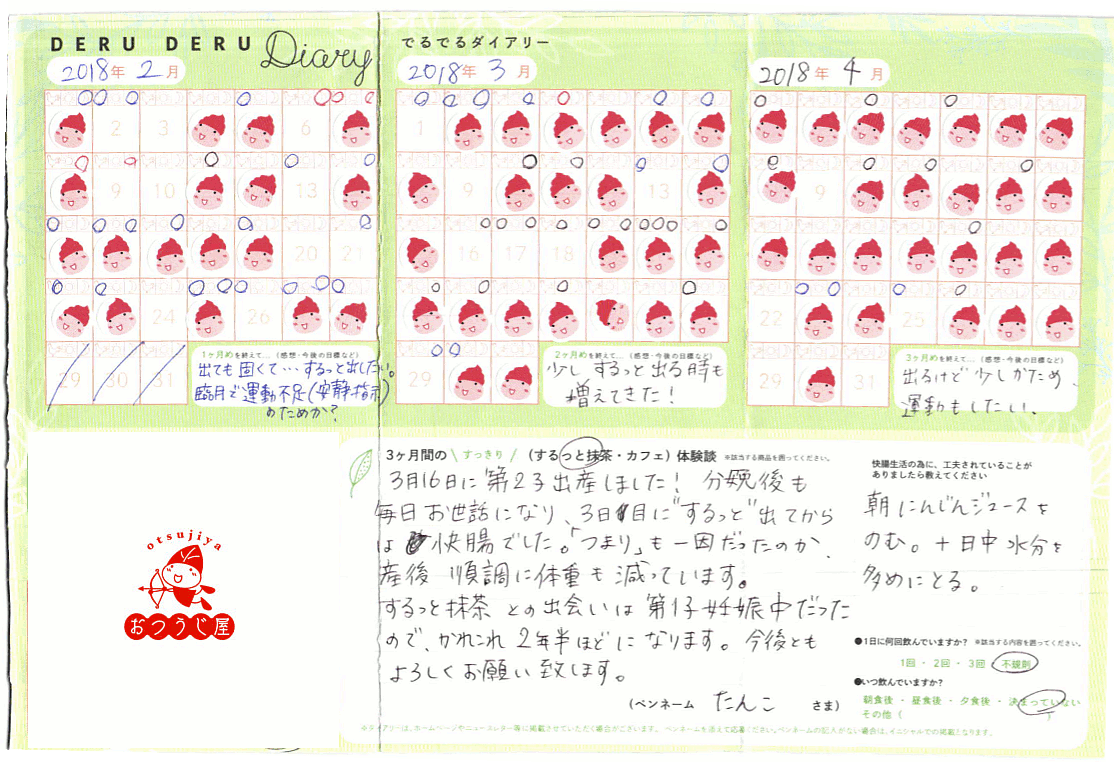 DERU DERU Diary でるでるダイアリー
2018年 2月
2018年 3月
2018年 4月
2 3 6
9 10 13
20 21
24 26
29 30 31
1
9 13
16 17 18
29
9
22 25
31
1ヶ月めを終えて… (感想・今後の目標など)
出ても固くて…するっと出したい。
臨月で運動不足(安静指示)
のためか?
2ヶ月めを終えて… (感想・今後の目標など)
少しするっと出る時も
増えてきた!
3ヶ月めを終えて… (感想・今後の目標など)
出るけど少しかため、
運動もしたい。
3ヶ月間の \ すっきり / (するっと抹茶・カフェ) 体験談 ※該当する商品を囲ってください。
3月16日に第2子出産しました! 分娩後も
毎日お世話になり、3日目に"するっと"出てから
は快腸でした。「つまり」も一因だったのか、
産後 順調に体重も減っています。
するっと抹茶との出会いは第1子妊娠中だった
ので、かれこれ2年半ほどになります。今後とも
よろしくお願い致します。
(ペンネーム たんこ さま)
快腸生活の為に、工夫されていることが
ありましたら教えてください
朝にんじんジュースを
のむ。+日中水分を
多めにとる。
●1日に何回飲んでいますか? ※該当する内容を囲ってください。
1回・2回・3回 不規則
●いつ飲んでいますか?
朝食後・昼食後・夕食後・決まっていない
その他( )
※ダイアリーは、ホームページやニュースレター等に掲載させていただく場合がございます。ペンネームを添えて応募ください。ペンネームの記入がない場合は、イニシャルでの掲載となります。
otsujiya
おつうじ屋